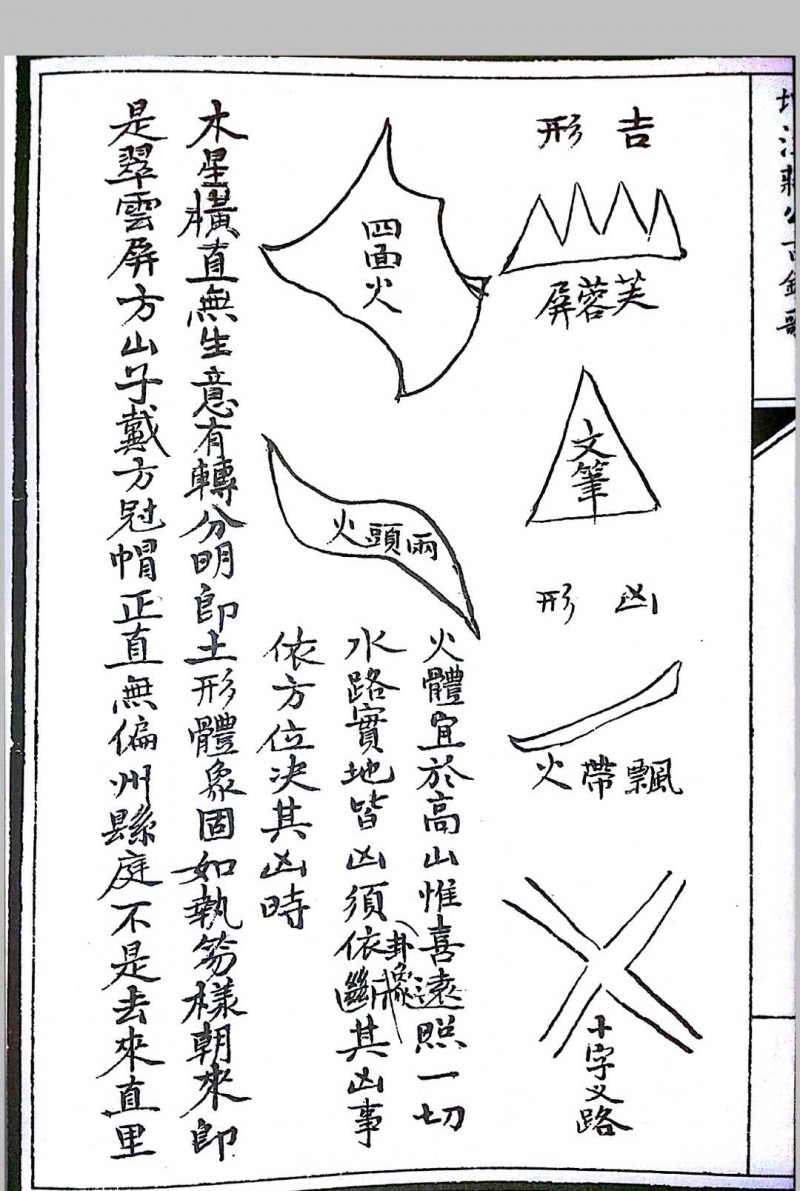 吉形
芙蓉屏
文筆
凶形
飄帶火
十字义路
四面火
兩頭火
火體宜於高山惟喜遠照一切
水路實地皆凶須依卦象斷其凶事
依方位决其凶時
木星橫直無生意有轉分明即土形體象固如執笏樣朝來即
是翠雲屏方山子戴方冠帽正直無偏州縣庭不是去來直里